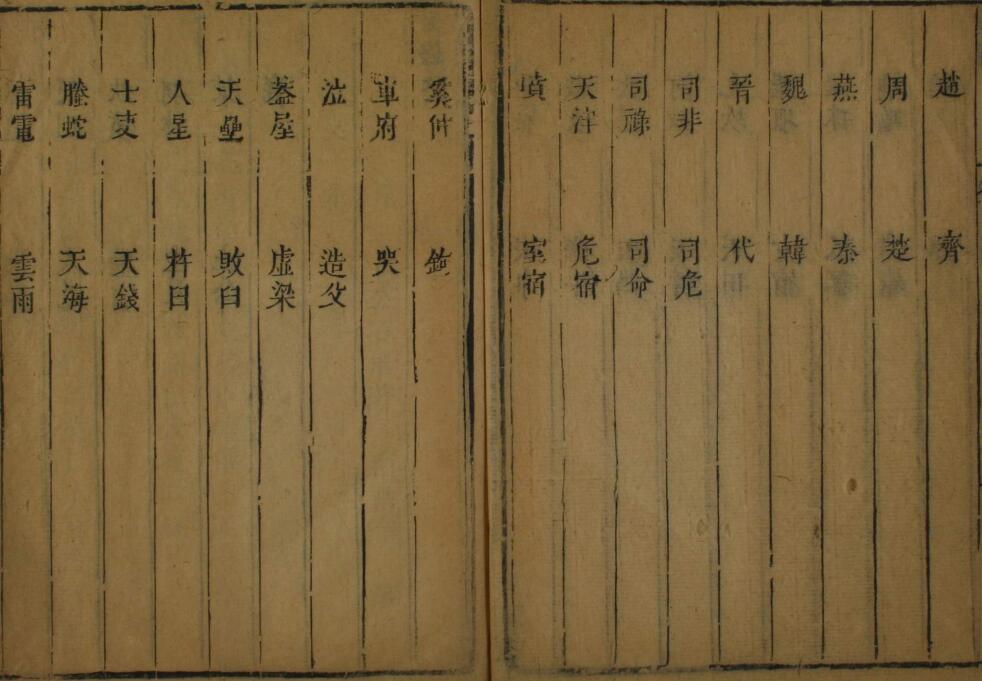 趙　齊
周　楚
燕　秦
魏　韓
晉　代
司非　司危
司祿　司命
天津　危宿
墳　室宿
奚仲　鈎
車府　哭
泣　造父
葢屋　虛梁
天壘　敗臼
人星　杵臼
土吏　天錢
螣蛇　天海
雷電　雲雨